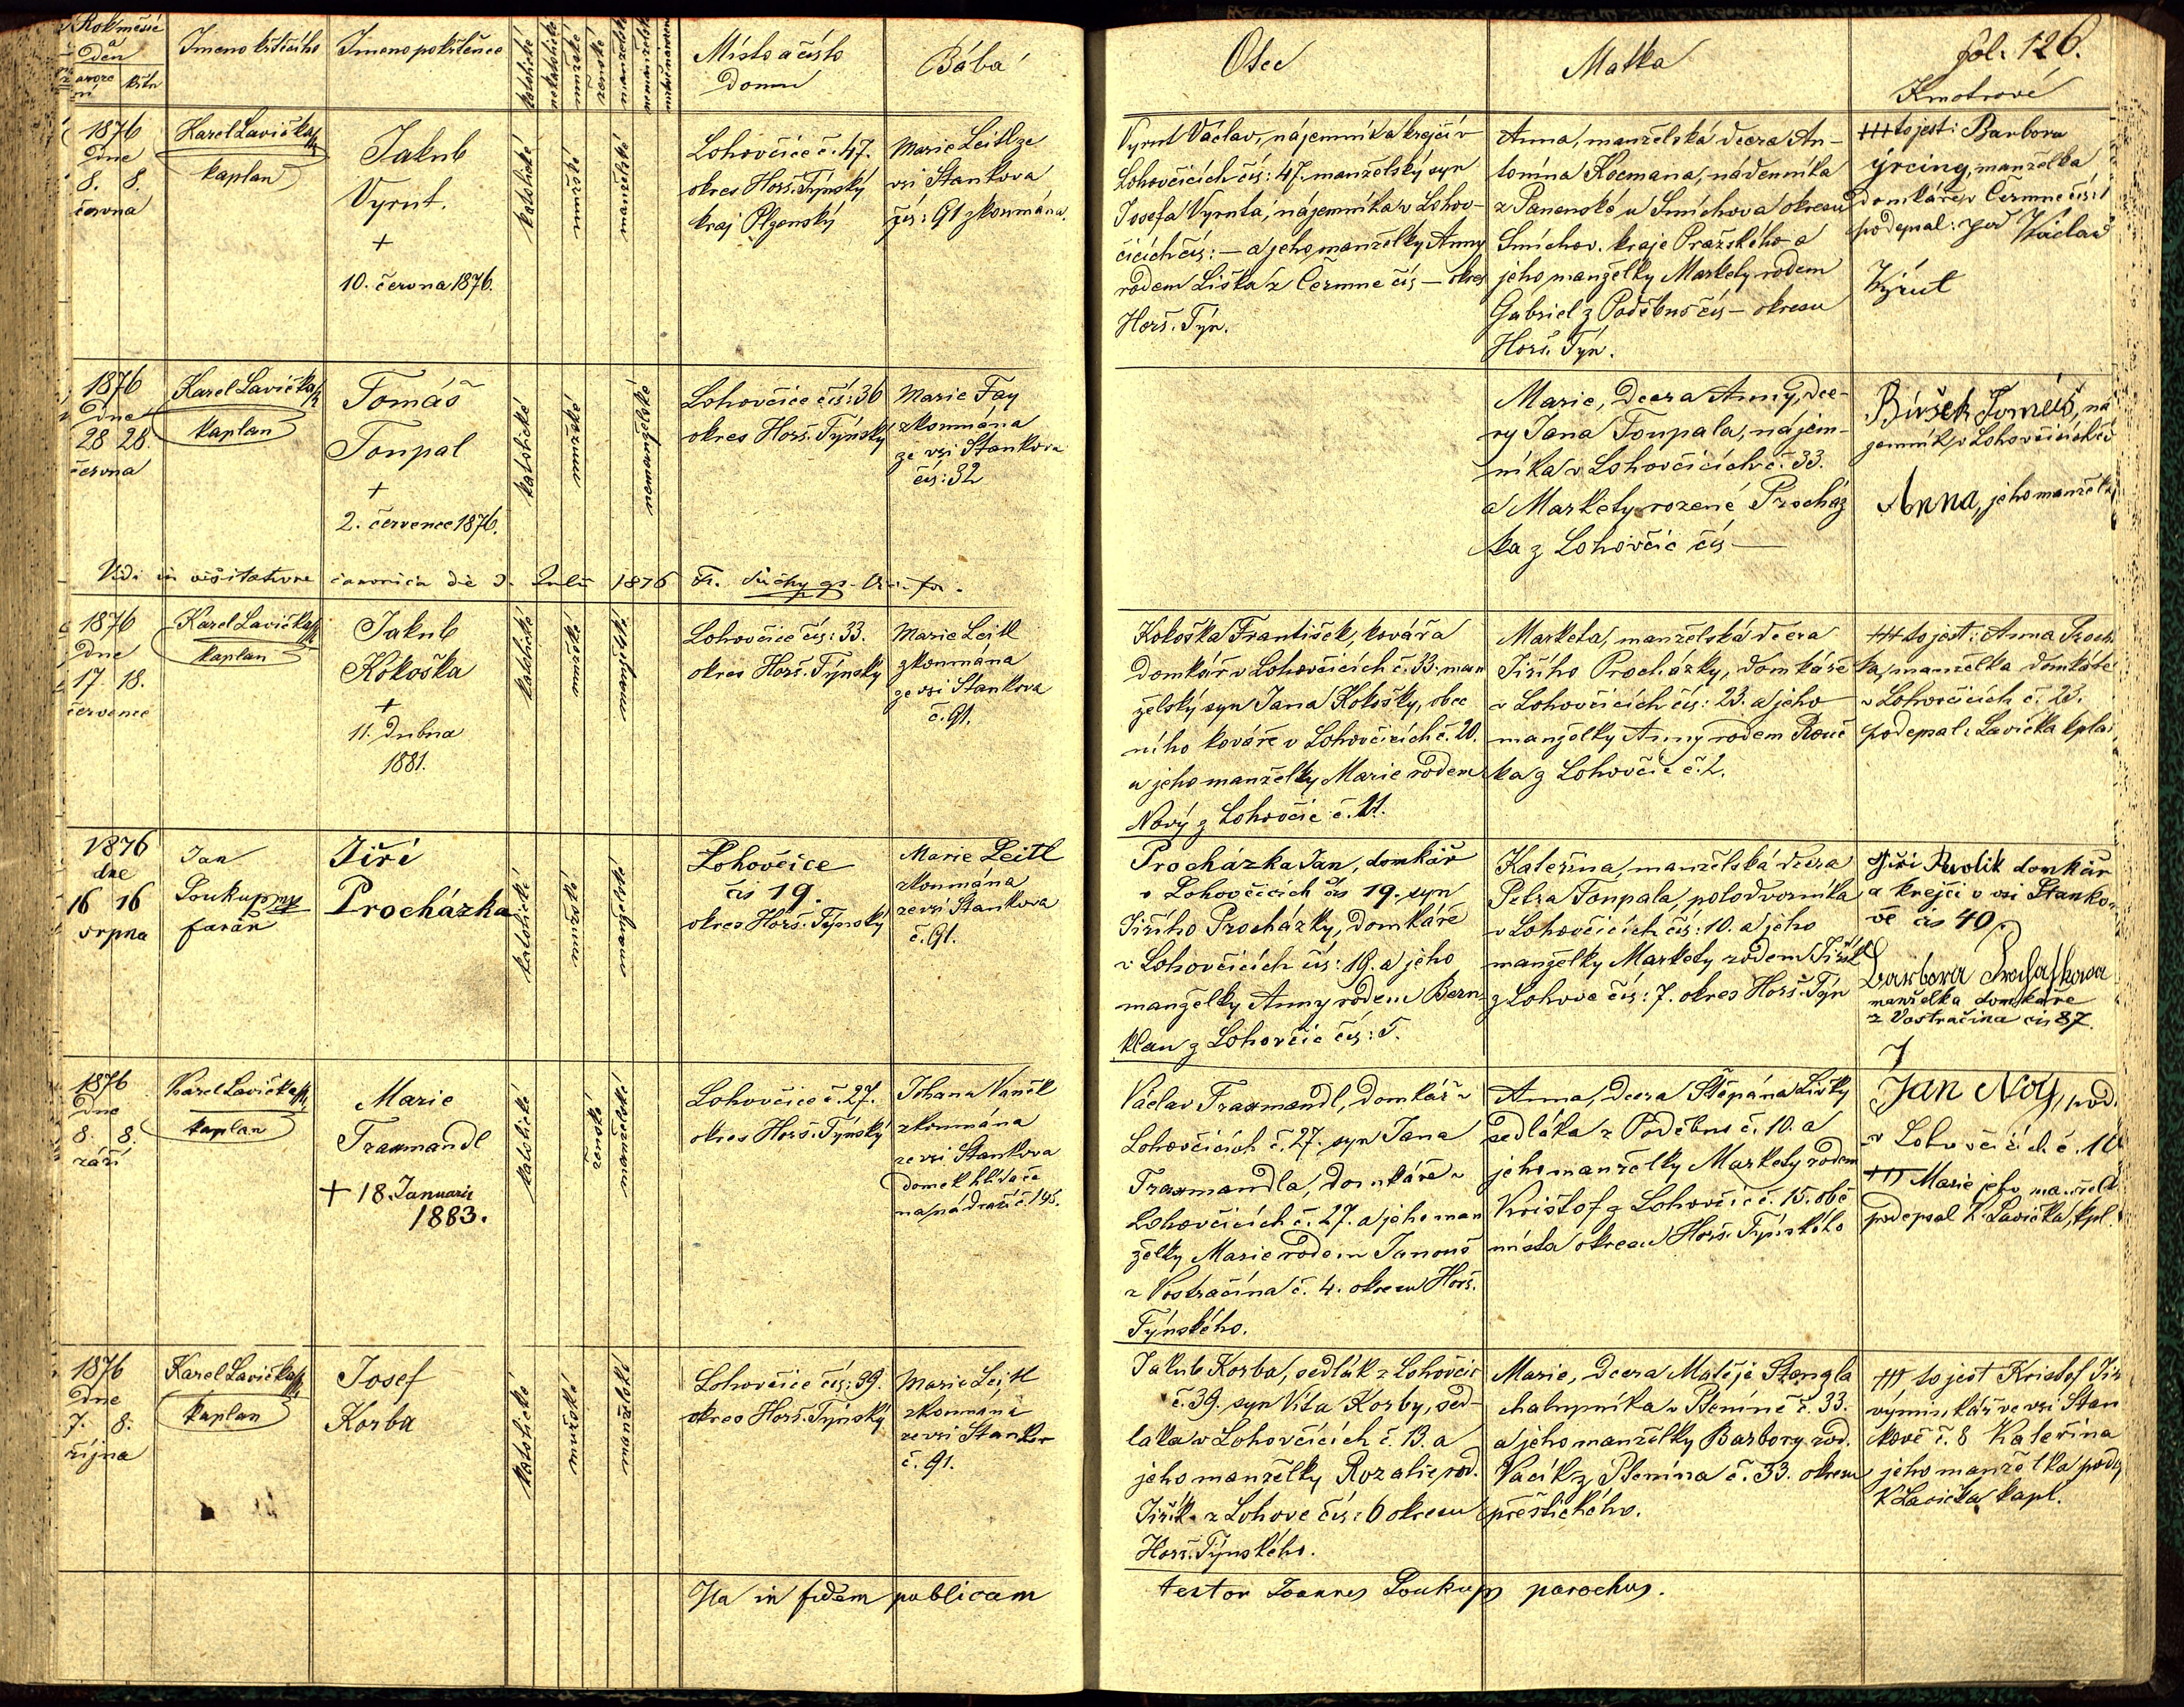 Rok měsíc
a
Den
naroze
ní
křtu
Jmeno křtícího
Jmeno pokřtěnce
katolické
nekatolické
mužské
ženské
manželské
nemanželské
Místo a číslo
Domu
Bába
Otec
Matka
fol. 126.
Kmotrové
1876
Dne
8. 8.
června
Karel Lavička
kaplan
Jakub
Vyrut.
+
10. června 1876.
katolické
mužské
manželské
Lohovčice č. 47.
okres Horš. Týnský
kraj Plzenský
Marie Leitl ze
vsi Stankova
čís: 91 zkoumána.
Vyrut Václav, nájemník a krejčí v
Lohovčicích čís: 47. manželský syn
Josefa Vyruta, nájemníka v Lohov-
čicích čís: — a jeho manželky Anny
rodem Liška z Čermne čís — okres
Horš. Týn.
Anna, manželská dcera An-
tonína Kocmana, nádenníka
z Panenské u Smíchova okresu
Smíchov. kraje Pražského a
jeho manželky Markety rodem
Gabriel z Poděbus čís — okresu
Horš. Týn.
+++ to jest: Barbora
manželka
domkáře v Čermne čís: 1
podepsal: Václav
Výrut
1876
Dne
28 28.
června
Karel Lavička
kaplan
Tomáš
Toupal
+
2. července 1876.
katolické
mužské
nemanželské
Lohovčice čís: 36
okres Horš. Týnský
Marie Fay
zkoumána
ze vsi Stankova
čís: 32
Marie, Dcera Anny, dce-
ry Jana Toupala, nájem-
níka v Lohovčicích č. 33.
a Markety rozené Procház
ka z Lohovčic čís —
Tomáš, ná
jemník v Lohovčicích č
Anna, jeho manželka
Vidi in visitatione canonica die 3. Julii 1876 Fr. Suchy
1876
Dne
17. 18.
července
Karel Lavička
kaplan
Jakub
Kokoška
+
11. Dubna
1881.
katolické
mužské
manželské
Lohovčice čís: 33.
okres Horš. Týnský
Marie Leitl
zkoumána
ze vsi Stankova
č. 91.
Kokoška František, kovář a
Domkář v Lohovčicích č. 33. man
želský syn Jana Kokošky, obec
ního kováře v Lohovčicích č. 20.
a jeho manželky Marie rodem
Nový z Lohovčic č. 11.
Marketa, manželská dcera
Jiřího Procházky, domkáře
v Lohovčicích čís: 23. a jeho
manželky Anny rodem Rouč
ka z Lohovčic č. 2.
+++ to jest: Anna Proch
ka, manželka domkáře
v Lohovčicích č. 23.
podepsal: Lavička kplan
1876
dne
16 16
srpna
Jan
Soukup mp
farář
Jiří
Procházka
katolické
mužské
manželské
Lohovčice
čis 19.
okres Horš. Týnský
Marie Leitl
zkoumána
ze vsi Stankova
č. 91.
Procházka Jan, domkář
v Lohovčicích čís 19. syn
Jiřího Procházky, Domkáře
v Lohovčicích čís: 19. a jeho
manželky Anny rodem Bern-
klau z Lohovčic čís: 5.
Kateřina, manželská dcera
Petra Toupala, polodvorníka
v Lohovčicích čís: 10. a jeho
manželky Markety rodem Jiřík
z Lohova čís: 7. okres Horš. Týn
Jiří Rwolik domkář
a krejčí v vsi Stanko-
vě čis 40.
Barbora Prochaskova
manželka domkáře
z Vostračina čis 87.
1876
Dne
8. 8.
září
Karel Lavička
kaplan
Marie
Traxmandl
+ 18. Januarii
1883.
katolické
ženské
manželské
Lohovčice č. 27.
okres Horš. Týnský
Johana Vaník
zkoumána
ze vsi Stankova
domek hlídače
na nádraží č. 145.
Václav Traxmandl, domkář v
Lohovčicích č. 27. syn Jana
Traxmandla, domkáře v
Lohovčicích č. 27. a jeho man
želky Marie rodem Janouš
z Vostračína č. 4. okresu Horš.
Týnského.
Anna, Dcera Štěpána Lišky
sedláka z Poděbus č. 10. a
jeho manželky Markety rodem
Krištof z Lohovčic č. 15. obě
místa okresu Horš. Týnského
Jan Noy,
v Lohovčicích č. 10
+++ Marie jeho manželk
podepsal K. Lavička, kpl.
1876
Dne
7. 8.
října
Karel Lavička
kaplan
Josef
Korba
katolické
mužské
manželské
Lohovčice čís: 39.
okres Horš. Týnský
Marie Leitl
zkoumána
ze vsi Stankov
č. 91.
Jakub Korba, sedlák z Lohovčic
č. 39. syn Víta Korby, sed-
láka v Lohovčicích č. 13. a
jeho manželky Rozalie, rod.
Jiřík z Lohova čís: 6 okresu
Horš. Týnského.
Marie, Dcera Matěje Stengla
chalupníka v Ptenině č. 33.
a jeho manželky Barbory rod.
Vacík z Ptenína č. 33. okresu
přeštického.
+++ to jest Kristof Jiř
výminkář ve vsi Stan
kově č. 8 Kateřina
jeho manželka pode
K Lavička kapl.
Ita in fidem publicam
testor Joannes Soukup parochus.